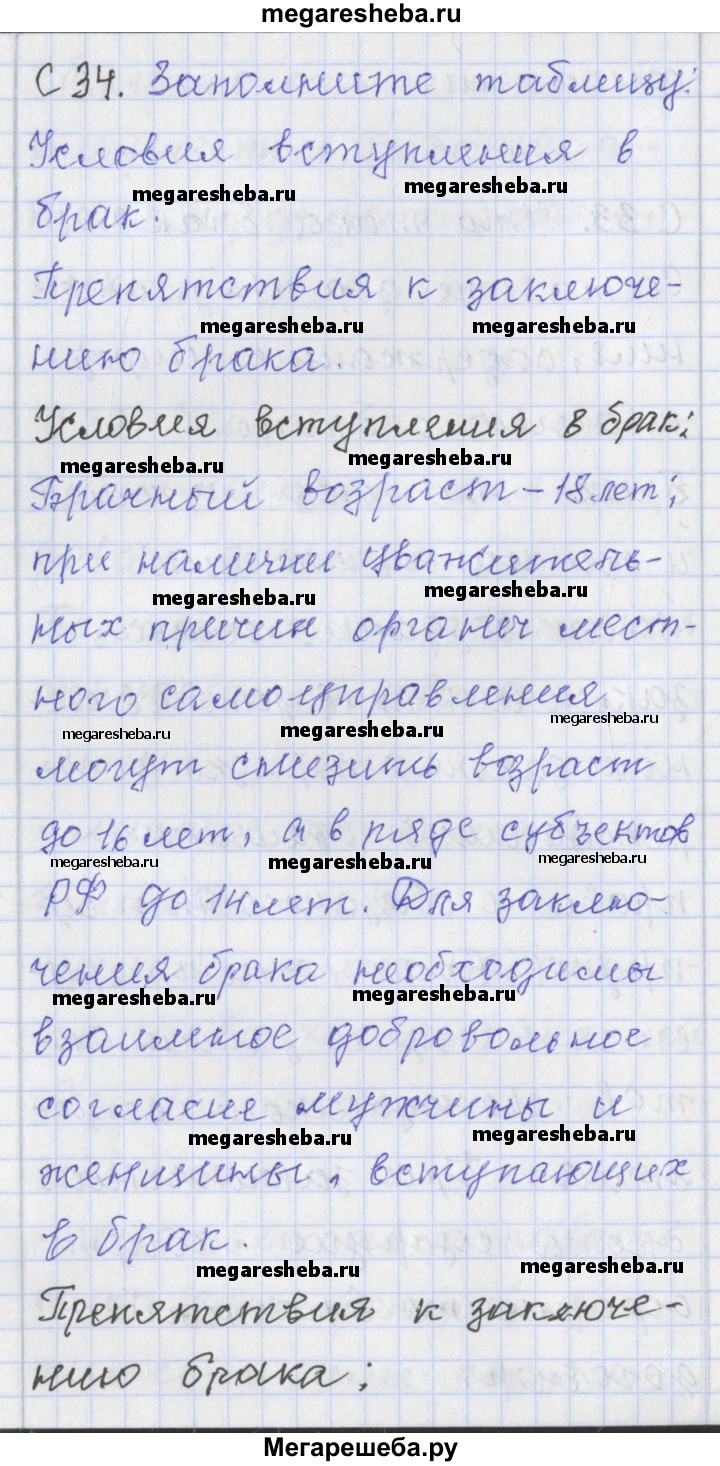 megaresheba.ru
С 34. Заполните таблицу:
Условия вступления в
megaresheba.ru megaresheba.ru
брак.
Препятствия к заключе-
megaresheba.ru megaresheba.ru
нию брака.
Условия вступления в брак:
megaresheba.ru megaresheba.ru
Брачный возраст – 18 лет;
при наличии уважитель-
megaresheba.ru megaresheba.ru
ных причин органы мест-
ного самоуправления
megaresheba.ru megaresheba.ru megaresheba.ru
могут снизить возраст
до 16 лет, а в ряде субъектов
megaresheba.ru megaresheba.ru megaresheba.ru
РФ до 14 лет. Для заклю-
чения брака необходимы
megaresheba.ru megaresheba.ru
взаимное добровольное
согласие мужчины и
megaresheba.ru megaresheba.ru
женщины, вступающих
в брак.
megaresheba.ru megaresheba.ru
Препятствия к заключе-
нию брака:
megaresheba.ru megaresheba.ru
Мегарешеба.ру